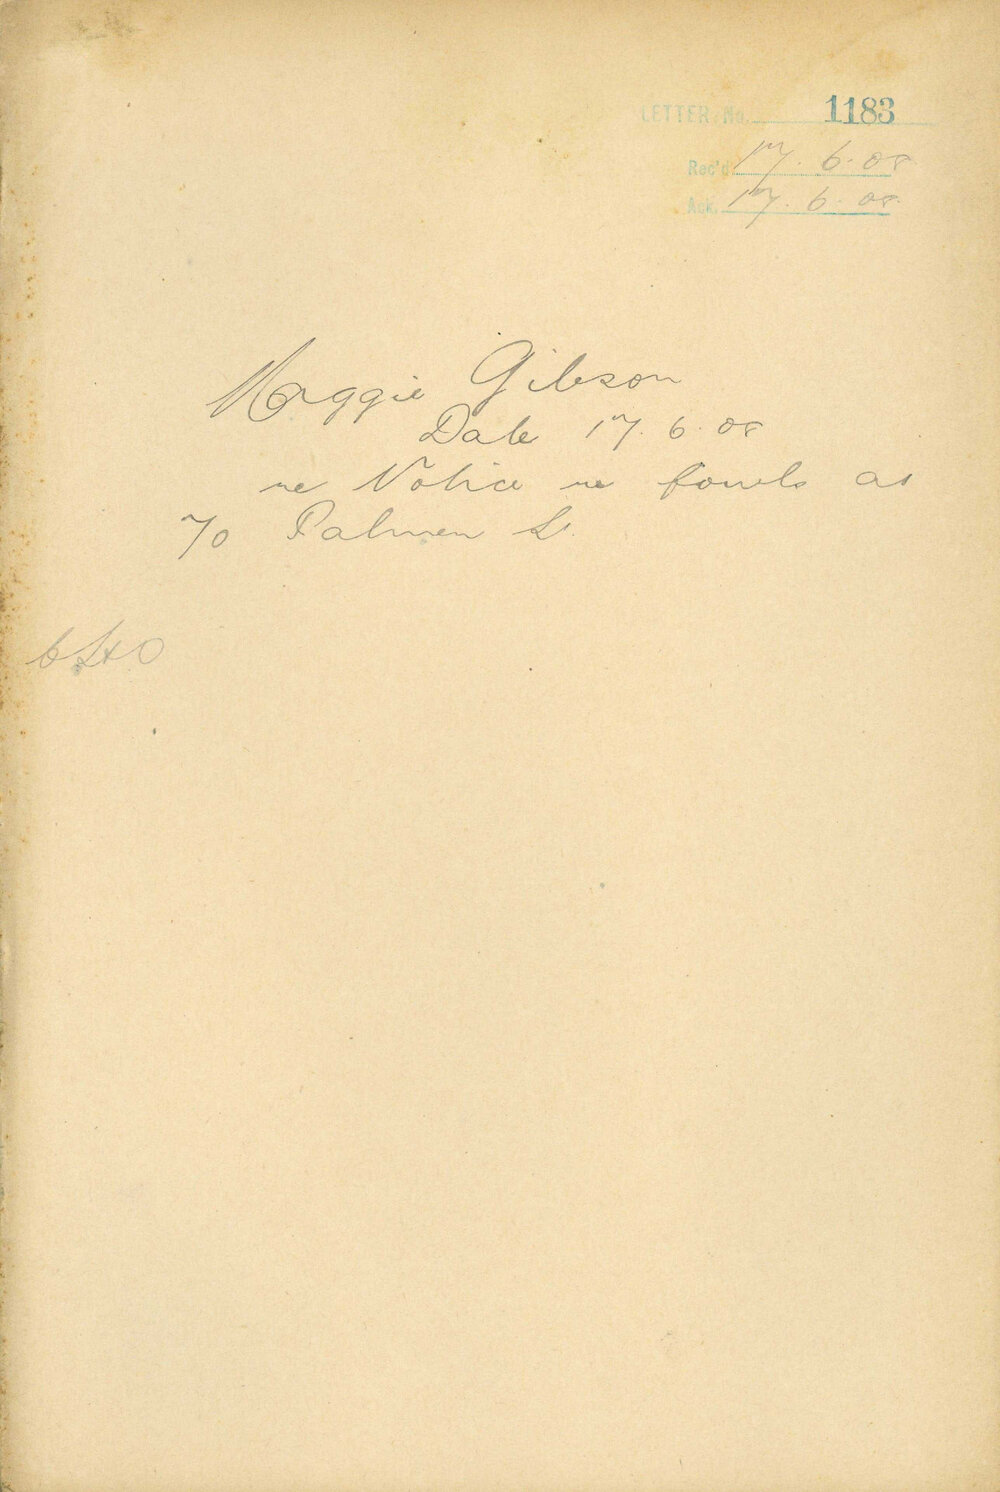 LETTER No. 1183
Rec'd 17.6.08
Ack. 17.6.08
Maggie Gibson
Date 17.6.08
re Notice re fowls at
70 Palmer St.